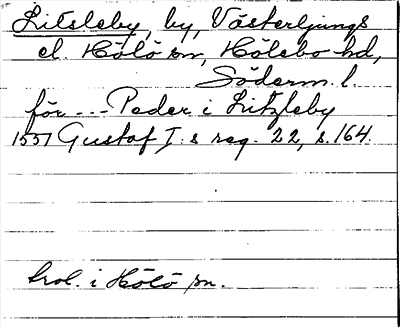 Litsleby, by, Västerljungs
el. Hölö sn, Hölebo hd,
Söderm. l.
för --- Peder i Litzleby
1551 Gustaf I:s reg. 22, s. 164.
trol. i Hölö sn.